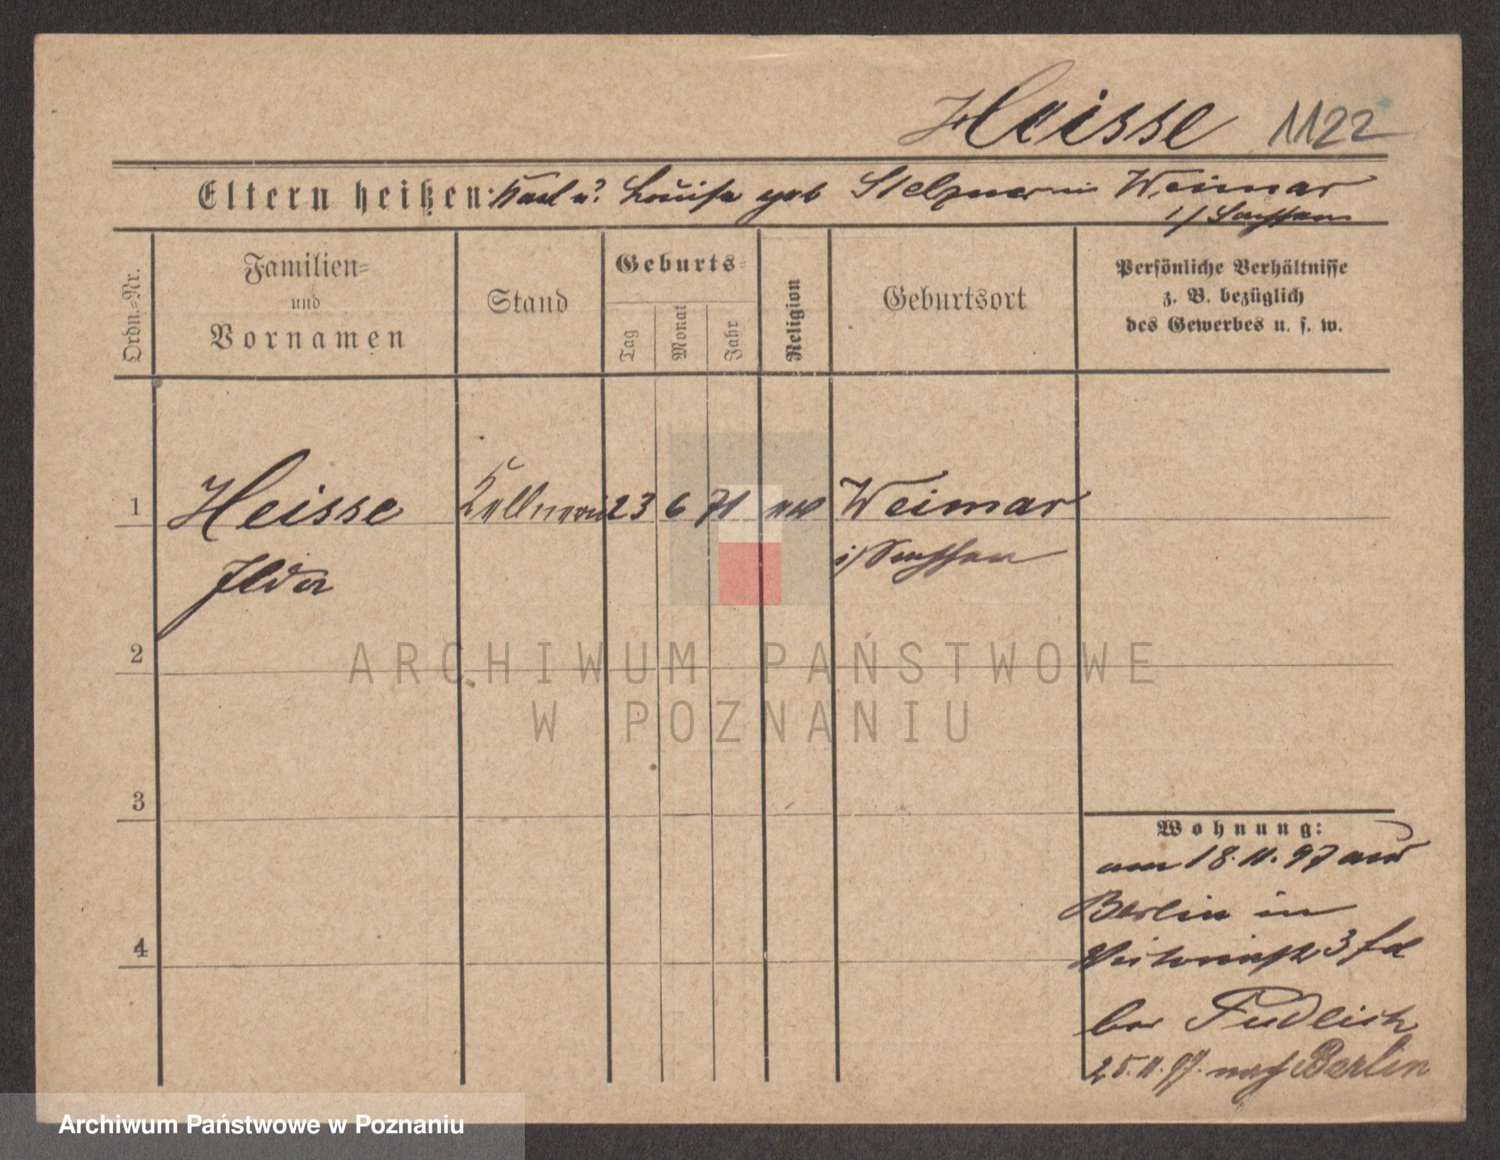 Heisse 1122
Eltern heißen: Karl u. Louise geb Stelzner in Weimar
i/ Sachsen
Ordn.-Nr.
Familien-
und
Vornamen
Stand
Geburts-
Tag
Monat
Jahr
Religion
Geburtsort
Persönliche Verhältnisse
z. B. bezüglich
des Gewerbes u. s. w.
1 Heisse Kellnerin 23 6 71 Weimar
Ilda i/ Sachsen
2
3
4
ARCHIWUM PAŃSTWOWE
W POZNANIU
Wohnung:
am 18.11.97 aus
Berlin in
3
bei Fudlich
25.11.97. nach Berlin
Archiwum Państwowe w Poznaniu